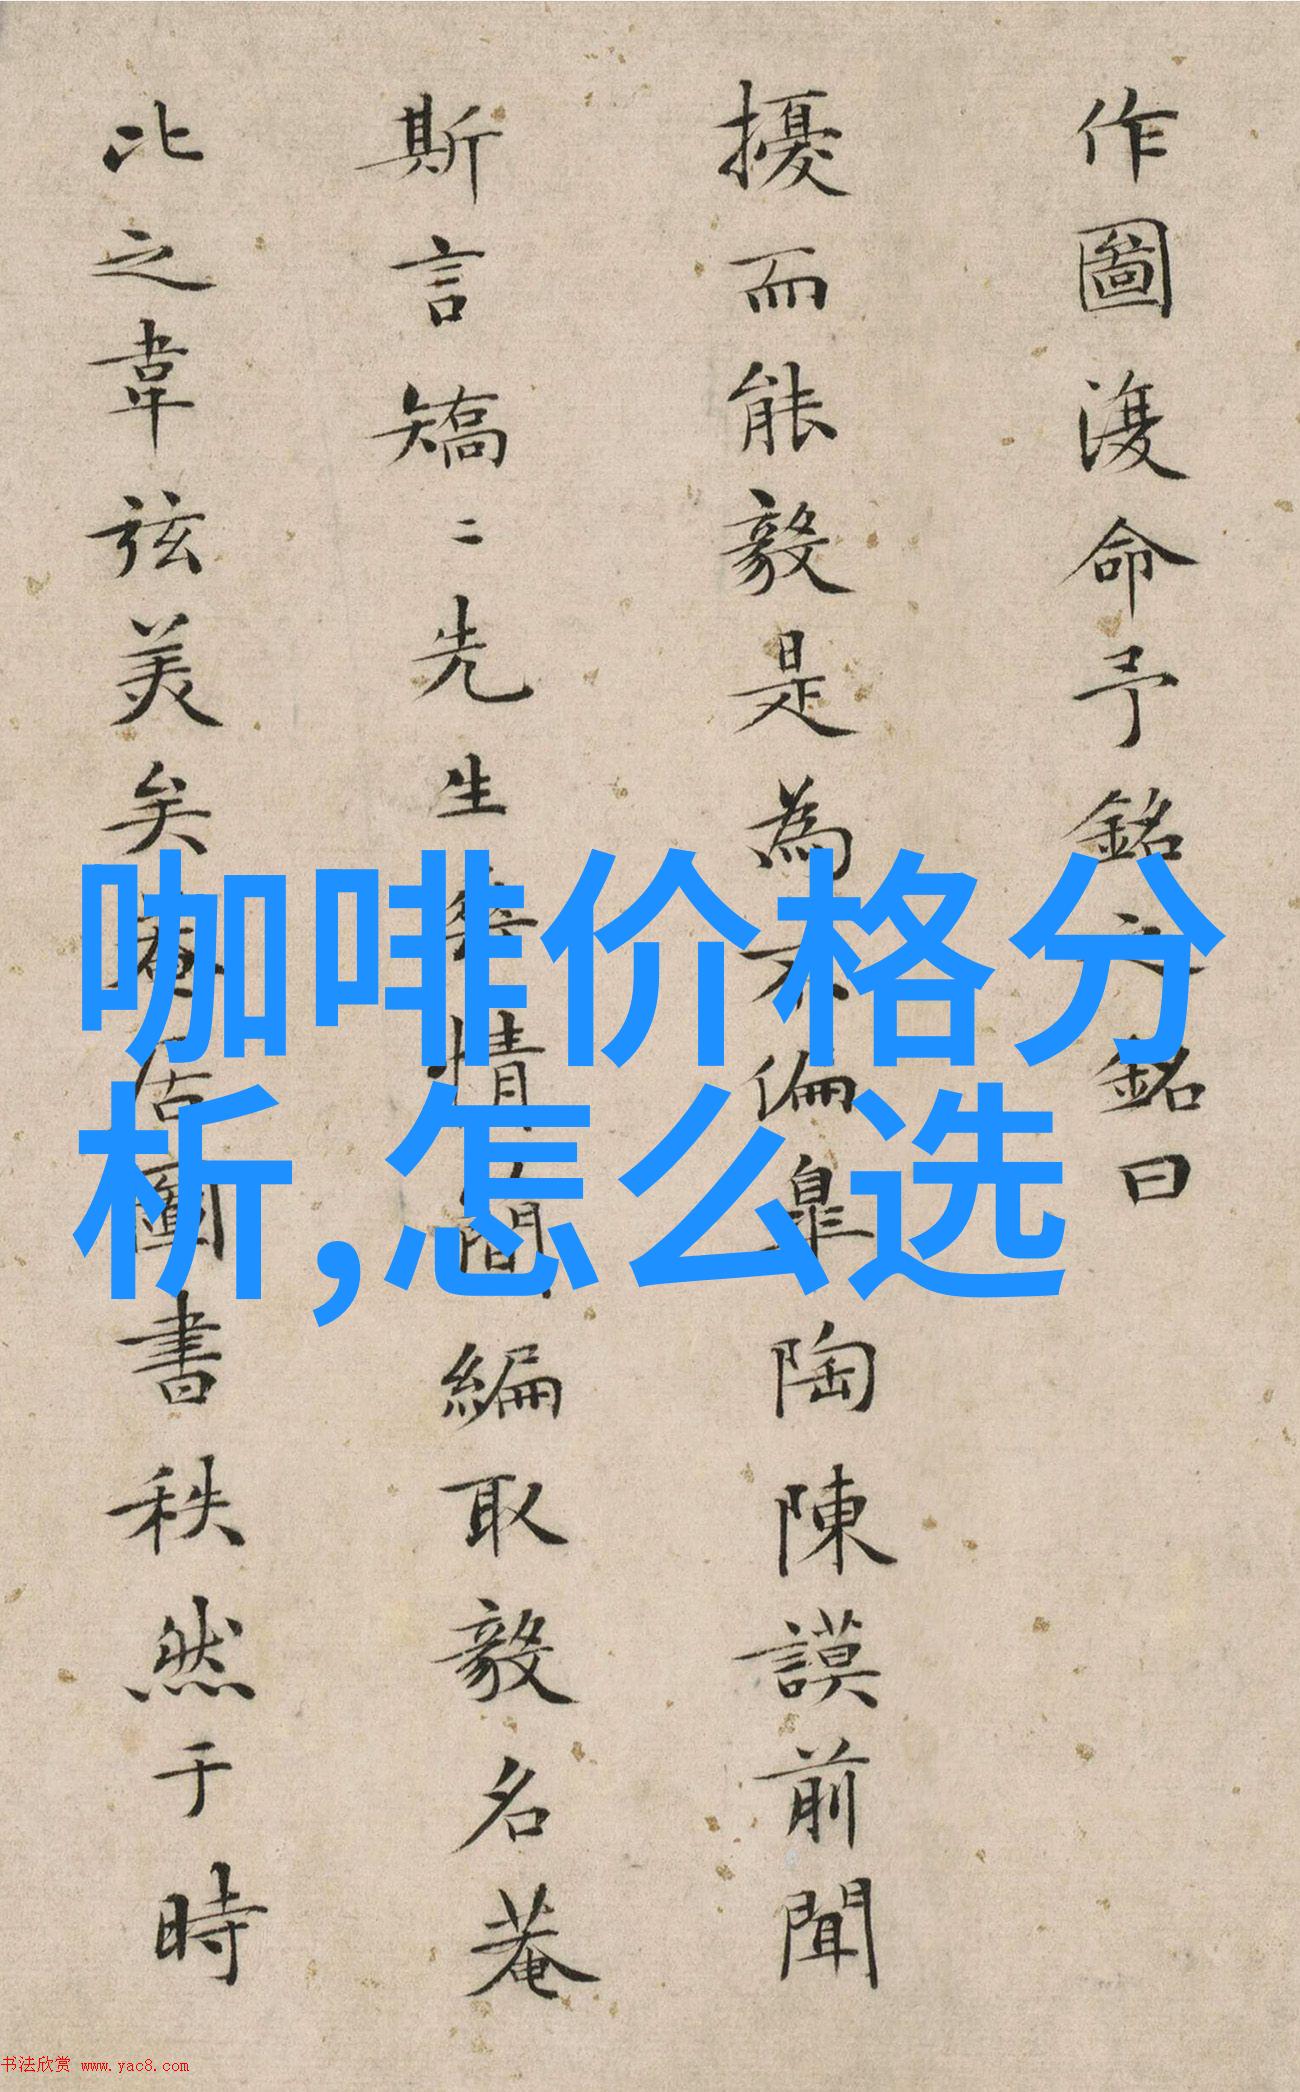 作圖復命予銘之銘曰
擾而能毅是為不偏臯陶陳謨前聞
斯言矯二先生無情簡編取毅名菴
比之韋弦美矣菴居圖書秩然于時
咖啡价格分
析,怎么选
书法欣赏 www.yac8.com